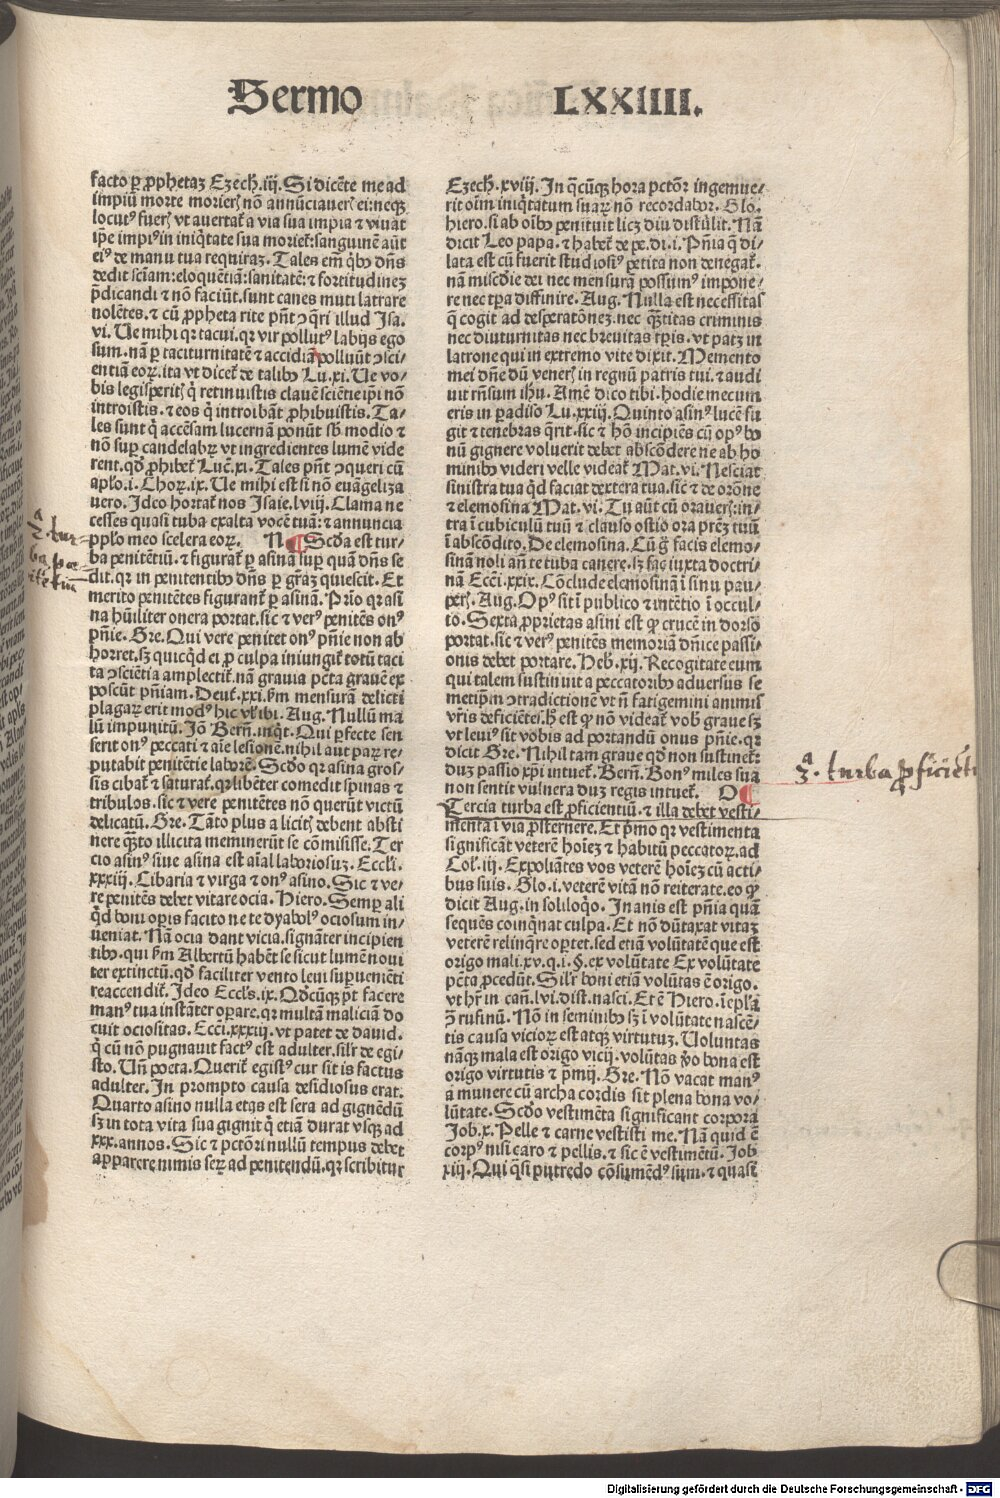 Sermo LXXIIII.
facto ꝑ ꝓphetaꝫ Ezech. iij. Si dicẽte me ad
impiũ morte morieris nõ annũciaueris ei: neqꝫ
locutꝰ fueris vt auertat᷑ a via sua impia ⁊ viuat
ip̃e impiꝰ in iniq̃tate sua moriet᷑: sanguinẽ aũt
eiꝰ de manu tua requiraꝫ. Tales em̃ qͥbꝰ dñs
dedit sciãm: eloquẽtiã: sanitatẽ: ⁊ fortitudineꝫ
p̃dicandi ⁊ nõ faciũt. sunt canes muti latrare
nolẽtes. ⁊ cũ ꝓpheta rite pñt ↄq̃ri illud Isa.
vi. Ue mihi qꝛ tacui. qꝛ vir pollutꝰ labijs ego
sum. nã ꝑ taciturnitatẽ ⁊ accidiã polluũt ↄsci-
entiã eoꝝ. ita vt dicet᷑ de talibꝰ Lu. xi. Ue vo-
bis legisꝑitis q̇ retinuistis clauẽ sciẽtie ip̃i nõ
introistis. ⁊ eos q̇ introibãt ꝓhibuistis. Ta-
les sunt q̇ accẽsam lucernã ponũt sb̃ modio ⁊
nõ suꝑ candelabꝝ vt ingredientes lumẽ vide
rent. qd̕ ꝓhibet᷑ Luc̃. xi. Tales pñt ↄqueri cũ
apl̃o. i. Choꝝ. ix. Ue mihi est si nõ euãgeliza
uero. Ideo hortat᷑ nos Isaie. lviij. Clama ne
cesses quasi tuba exalta vocẽ tuã: ⁊ annuncia
ppl̃o meo scelera eoꝝ. N ¶ Scd̃a est tur-
ba penitẽtiũ. ⁊ figurat᷑ ꝑ asinã suꝑ quã dñs se
dit. qꝛ in penitentibꝰ dñs ꝑ gr̃aꝫ quiescit. Et
merito penitẽtes figurant᷑ ꝑ asinã. Prĩo qꝛ asi
na hũiliter onera portat. sic ⁊ verꝰ penitẽs onꝰ
pñie. Gre. Qui vere penitet onꝰ pñie non ab
horret. sꝫ quicq̃d ei ꝓ culpa iniungit᷑ totũ taci
ta ↄsciẽtia amplectit᷑. nã grauia pctã grauẽ ex
poscũt pñiam. Deut᷑. xxi. ẜm mensurã delicti
plagaꝝ erit modꝰ hic vl̕ ibi. Aug. Nullũ ma
lũ impunitũ. Jõ Berñ. inq̇t. Qui ꝑfecte sen
serit onꝰ peccati ⁊ aĩe lesionẽ. nihil aut paꝝ re-
putabit penitẽtie laborẽ. Scd̃o qꝛ asina gros-
sis cibat᷑ ⁊ saturat᷑. qꝛ libẽter comedit spinas ⁊
tribulos. sic ⁊ vere penitẽtes nõ querũt victũ
delicatũ. Gre. Tãto plus a licitis debent absti
nere quãto illicita meminerũt se cõmisisse. Ter
cio asinꝰ siue asina est aĩal laboriosuꝫ. Eccl̃i.
xxxiij. Cibaria ⁊ virga ⁊ onꝰ asino. Sic ⁊ ve-
re penitẽs debet vitare ocia. Hiero. Semꝑ ali
q̇d boni oꝑis facito ne te dyabolꝰ ociosum in-
ueniat. Nã ocia dant vicia. signãter incipien
tibꝰ. qui ẜm Albertũ habẽt se sicut lumẽ noui
ter extinctũ. qd̕ faciliter vento leui suꝑueniẽti
reaccendit᷑. Ideo Eccl̃s. ix. Qd̕cũqꝫ põt facere
manꝰ tua instãter oꝑare. qꝛ multã maliciã do
cuit ociositas. Ecc̃i. xxxiij. vt patet de dauid.
q̇ cũ nõ pugnauit factꝰ est adulter. sil̃r de egi-
sto. Uñ poeta. Querit᷑ egistꝰ cur sit is factus
adulter. In prompto causa desidiosus erat.
Quarto asino nulla etas est sera ad gignẽdũ
sꝫ in tota vita sua gignit q̇ etiã durat vsqꝫ ad
xxx. annos. Sic ⁊ pctõri nullũ tempus debet
apparere nimis seꝝ ad penitendũ. qꝛ scribitur
Ezech. xviij. In q̃cũqꝫ hora pctõr ingemue-
rit oĩm iniq̃tatum suaꝝ nõ recordabor. Glo.
hiero. si ab oĩbꝰ penituit licꝫ diu distulit. Nã
dicit Leo papa. ⁊ habet᷑ de pe. di. i. Pñia q̃ di-
lata est cũ fuerit studiosiꝰ petita non denegat᷑.
nã misc̃die dei nec mensurã possumꝰ impone-
re nec tꝑa diffinire. Aug. Nulla est necessitas
q̃ cogit ad desperatõneꝫ. nec quãtitas criminis
nec diuturnitas nec breuitas tꝑis. vt patꝫ in
latrone qui in extremo vite dixit. Memento
mei dñe dũ veneris in regnũ patris tui. ⁊ audi
uit rñsum ih̃u. Amẽ dico tibi. hodie mecum
eris in ꝑadiso Lu. xxiij. Quinto asinꝰ lucẽ fu
git ⁊ tenebras q̃rit. sic ⁊ hõ incipiẽs cũ opꝰ bo
nũ gignere voluerit debet abscõdere ne ab ho
minibꝰ videri velle videat᷑ Mat. vi. Nesciat
sinistra tua q̇d faciat dextera tua. sic ⁊ de orõne
⁊ elemosina Mat. vi. Tu aũt cũ oraueris: in-
tra ĩ cubiculũ tuũ ⁊ clauso ostio ora pr̃eꝫ tuũ
ĩ abscõdito. De elemosina. Cũ g̊ facis elemo-
sinã noli añ te tuba canere. sꝫ fac iuxta doctri-
nã Ecc̃i. xxix. Cõclude elemosinã ĩ sinu pau-
peris. Aug. Opꝰ sit ĩ publico ⁊ intẽtio ĩ occul-
to. Sexta ꝓprietas asini est ꝙ crucẽ in dorso
portat. sic ⁊ verꝰ penitẽs memoriã dñice passi-
onis debet portare. Heb̕. xij. Recogitate eum
qui talem sustinuit a peccatoribꝰ aduersus se
metip̃m ↄtradictionẽ vt ñ fatigemini animis
vr̃is deficiẽtes. h̕ est ꝙ nõ videat᷑ vob̕ graue sꝫ
vt leuiꝰ sit vobis ad portandũ onus pñie. qꝛ
dicit Gre. Nihil tam graue qd̕ non sustinet᷑:
duꝫ passio xp̃i intuet᷑. Berñ. Bonꝰ miles sua
non sentit vulnera duꝫ regis intuet᷑. O ¶
Tercia turba est ꝓficientiũ. ⁊ illa debet vesti-
menta ĩ via ꝓsternere. Et p̃mo qꝛ vestimenta
significãt veterẽ hoĩeꝫ ⁊ habitũ peccatoꝝ. ad
Col̕. iij. Expoliãtes vos veterẽ hoĩeꝫ cũ acti-
bus suis. Glo. i. veterẽ vitã nõ reiterate. eo ꝙ
dicit Aug. in soliloq̇o. Inanis est pñia quã
sequẽs coinq̇nat culpa. Et nõ dũtaxat vitaꝫ
veterẽ relinq̃re oꝑtet. sed etiã volũtatẽ que est
origo mali. xv. q. i. §. ex volũtate Ex volũtate
pctã ꝓcedũt. Sil̃r boni etiã volũtas ẽ origo.
vt hr̃ in cañ. lvi. dist. nasci. Et ẽ Hiero. ĩ ep̃la
ↄ̃ rufinũ. Nõ in seminibꝰ sꝫ ĩ volũtate nascẽ-
tis causa vicioꝝ est atqꝫ virtutuꝫ. Uoluntas
nãqꝫ mala est origo vicij. volũtas ꝟo bona est
origo virtutis ⁊ p̃mij. Gre. Nõ vacat manꝰ
a munere cũ archa cordis sit plena bona vo-
lũtate. Scd̃o vestimẽta significant corpora
Job. x. Pelle ⁊ carne vestisti me. Nã quid ẽ
corpꝰ nisi caro ⁊ pellis. ⁊ sic ẽ vestimẽtũ. Job
xiij. Qui q̃si putredo cõsumẽdꝰ sum. ⁊ quasi
2ª. tur-
ba pe
nitẽtiũ
3ª. turba ꝓficiẽti
Digitalisierung gefördert durch die Deutsche Forschungsgemeinschaft - DFG